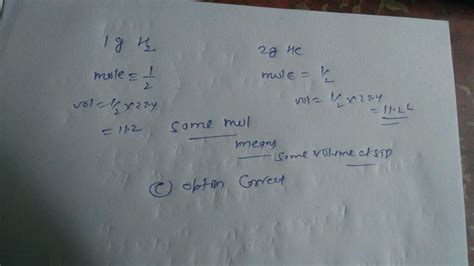 1g H₂
mole = 1/2
vol = 1/2 x 22.4
= 11.2
2g He
mole = 1/2
vol = 1/2 x 22.4
= 11.2 L
Same mol
means
same volume at STP
(C) option correct